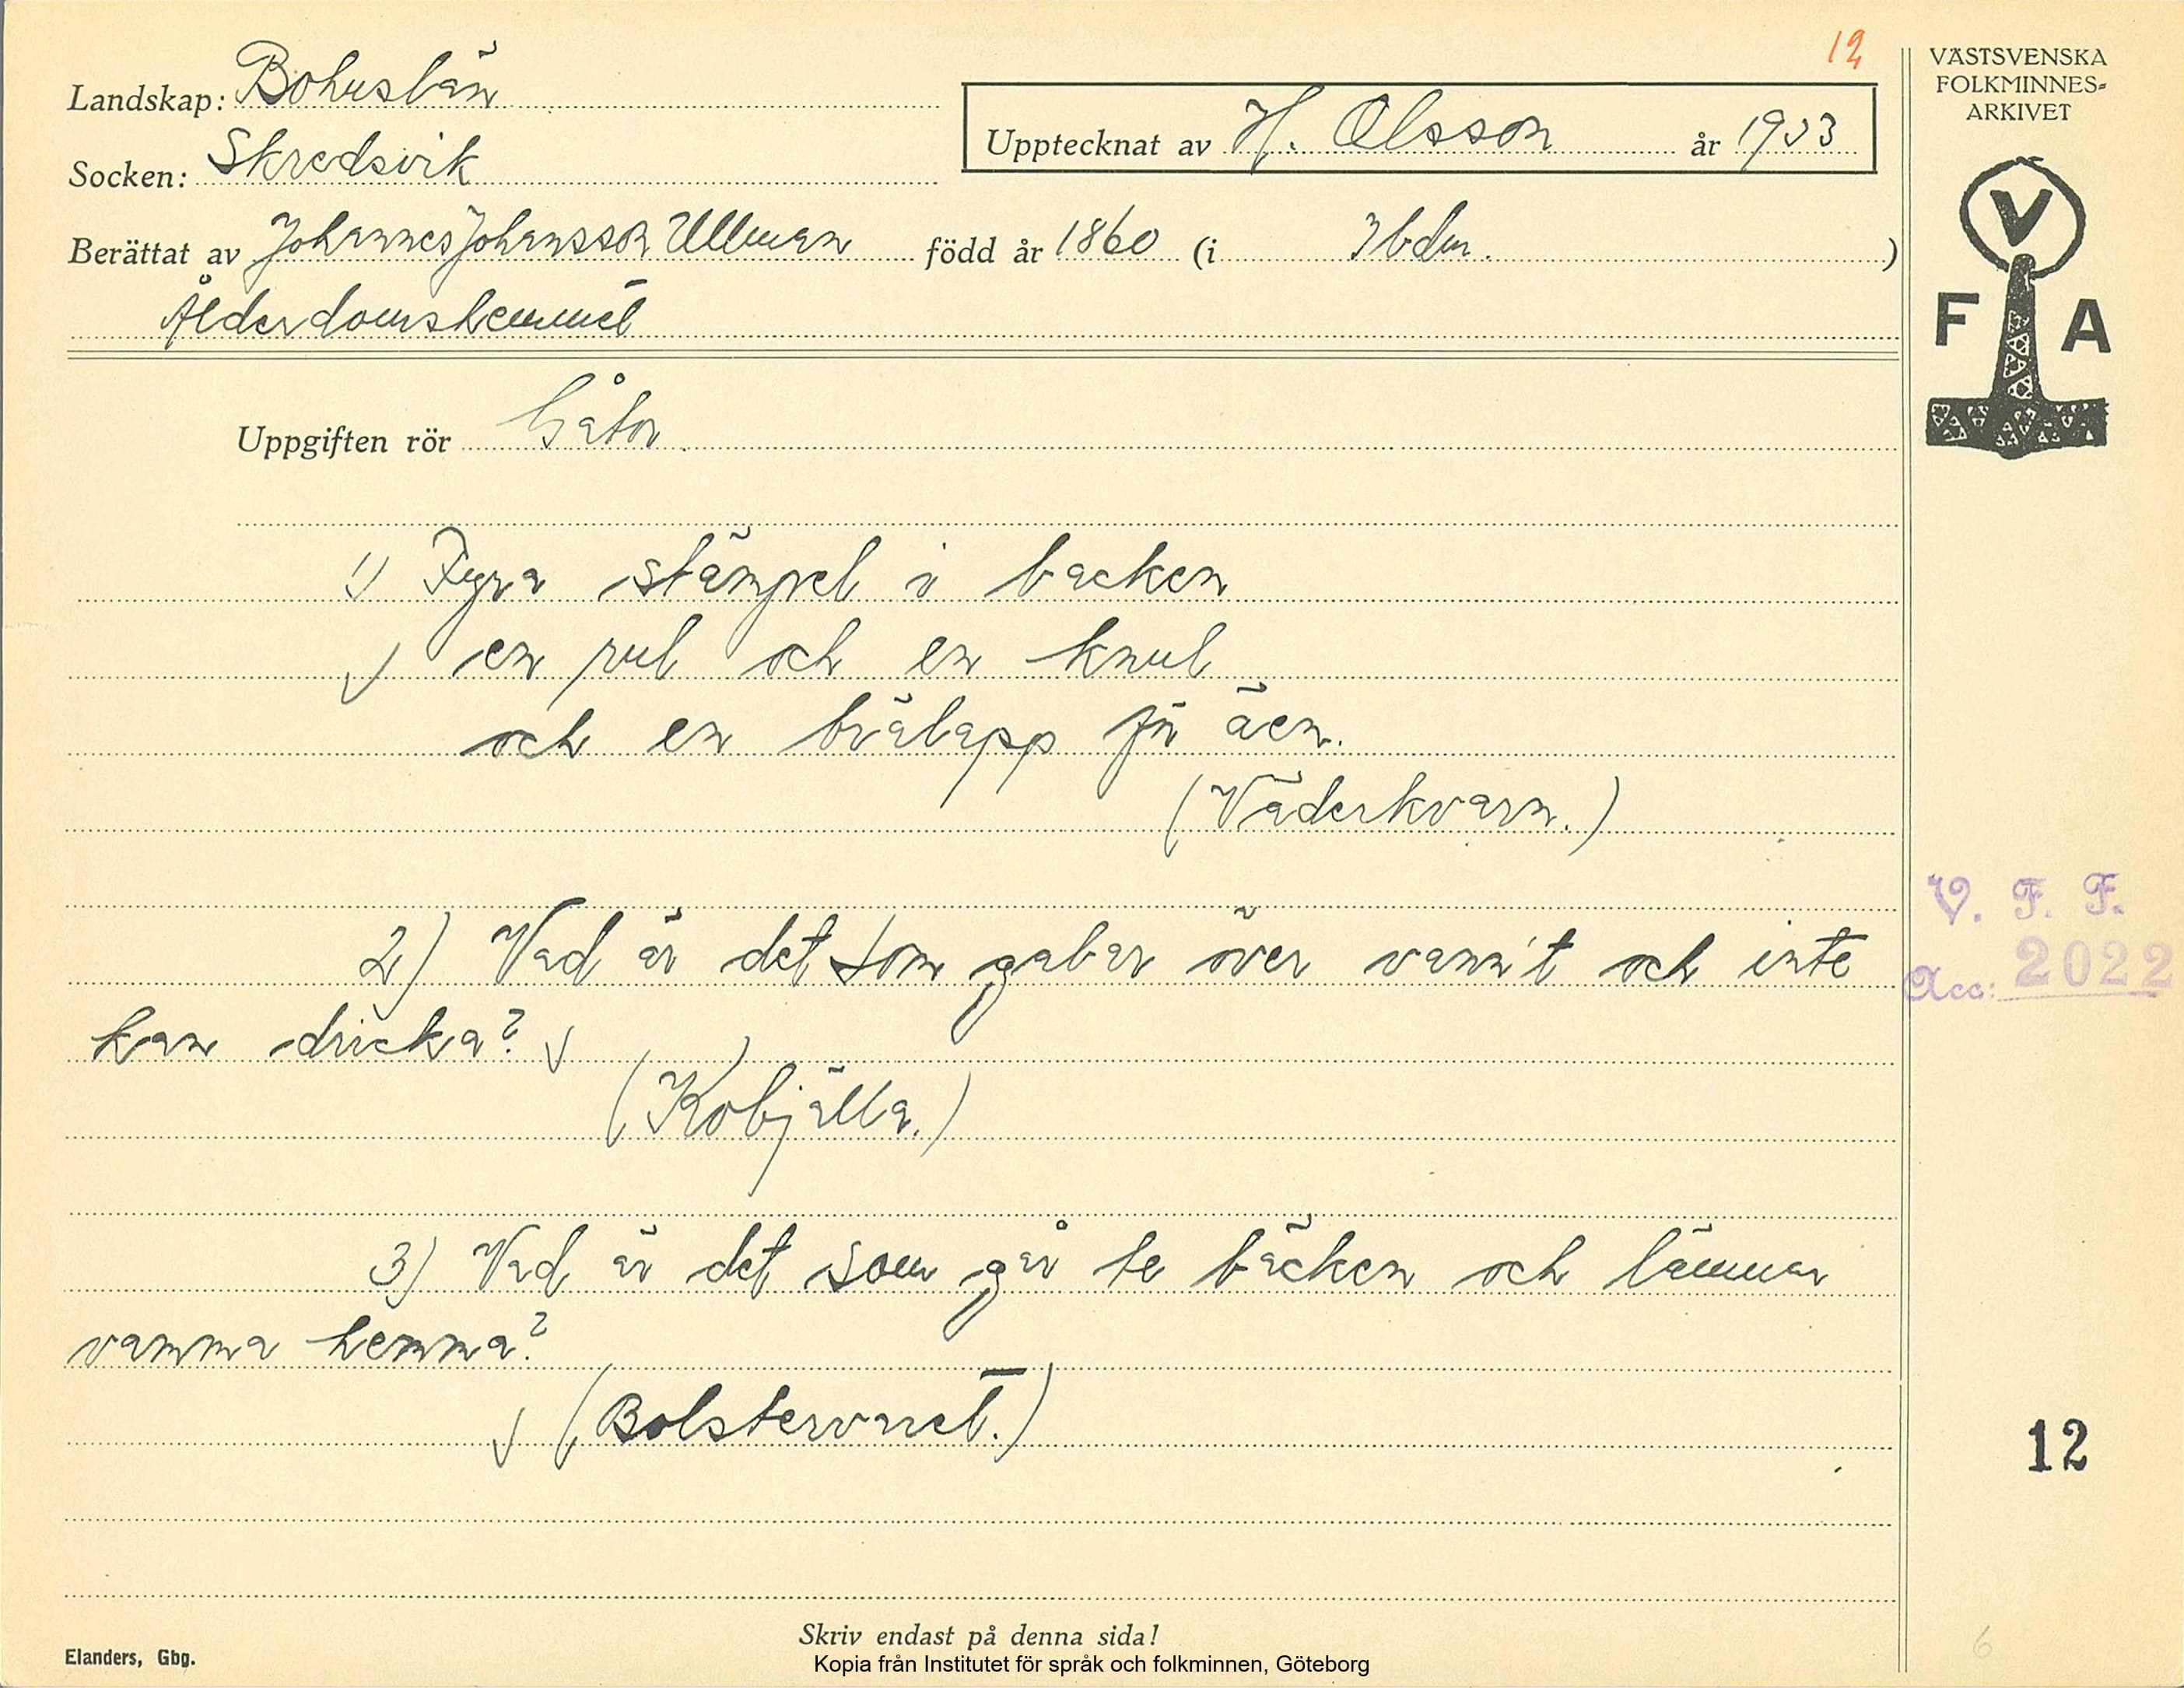 12
Landskap: Bohuslän
Socken: Skredsvik
Upptecknat av H. Olsson år 1933
Berättat av Johannes Johansson Ullman född år 1860 (i Ibdm.)
Ålderdomshemmet
VÄSTSVENSKA
FOLKMINNES-
ARKIVET
V
F A
Uppgiften rör Gåtor
1) Fyra stämpel i backen
en rul och en knul
och en brälapp åen.
(Väderkvarn.)
2) Vad är det som gabar över vann't och inte
kan dricka?
(Kobjälla.)
V. F. F.
Acc: 2022
3) Vad är det som går te bäcken och lämnar
vamma hemma?
(Bolstervaret.)
12
6
Skriv endast på denna sida!
Elanders, Gbg.
Kopia från Institutet för språk och folkminnen, Göteborg